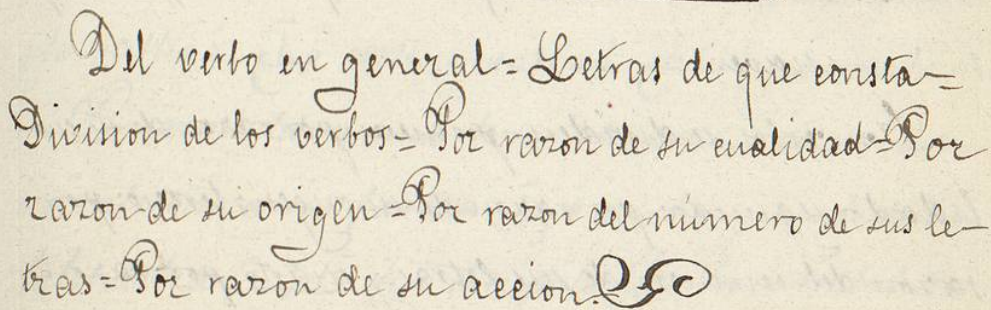 Del verbo en general = Letras de que consta =
Division de los verbos = Por razon de su cualidad = Por
razon de su origen = Por razon del número de sus le-
tras = Por razon de su accion.